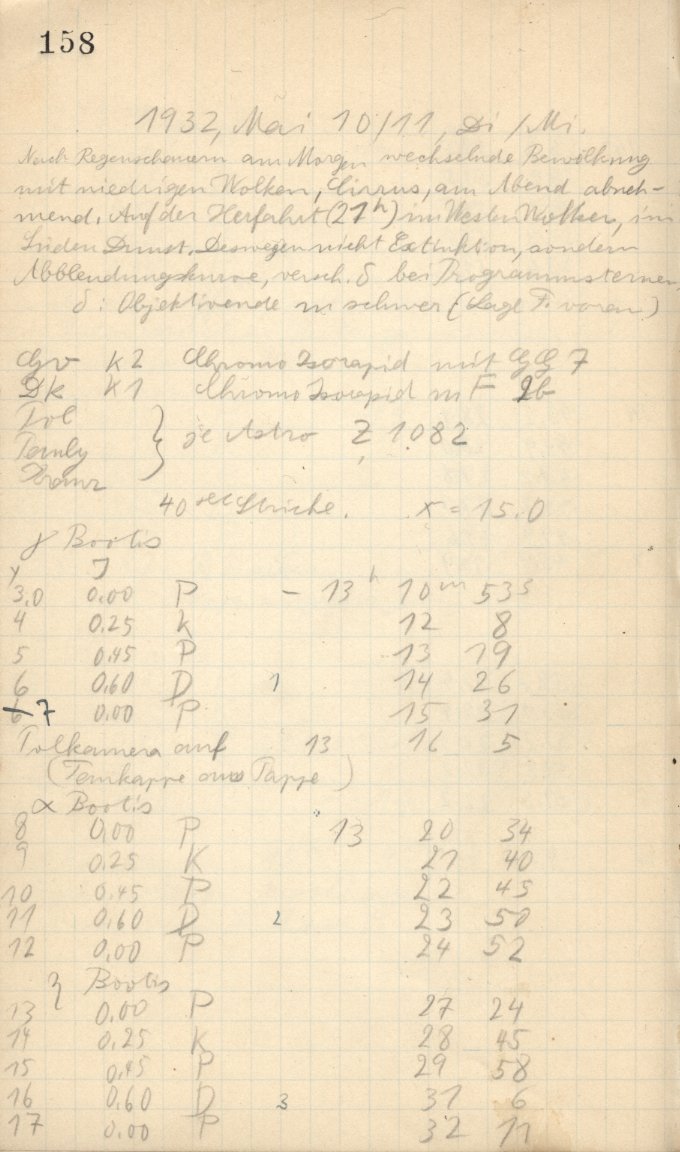 158
1932, Mai 10/11, Di/Mi.
Nach Regenschauern am Morgen wechselnde Bewölkung
mit niedrigen Wolken, Cirrus, am Abend abneh-
mend. Auf der Herfahrt (21h) im Westen Wolken, im
Süden Dunst. Deswegen nicht Extinktion, sondern
Abblendungskurve, versch. δ bei Programmsternen,
δ: Objektivende zu schwer (Lage F. voran)
Gr K2 Chromo Isorapid mit GG 7
Dk K1 Chromo Isorapid m F 2b
Pol
} je Astro Z 1082
40 sec Striche. x = 15.0
γ Bootis
y J
3.0 0.00 P – 13h 10m 53s
4 0.25 K 12 8
5 0.45 P 13 19
6 0.60 D 1 14 26
6 7 0.00 P 15 31
Polkamera auf 13 16 5
(Temkappe aus Pappe)
α Bootis
8 0.00 P 13 20 34
9 0.25 K 21 40
10 0.45 P 22 45
11 0.60 D 2 23 50
12 0.00 P 24 52
ζ Bootis
13 0.00 P 27 24
14 0.25 K 28 45
15 0.45 P 29 58
16 0.60 D 3 31 6
17 0.00 P 32 11